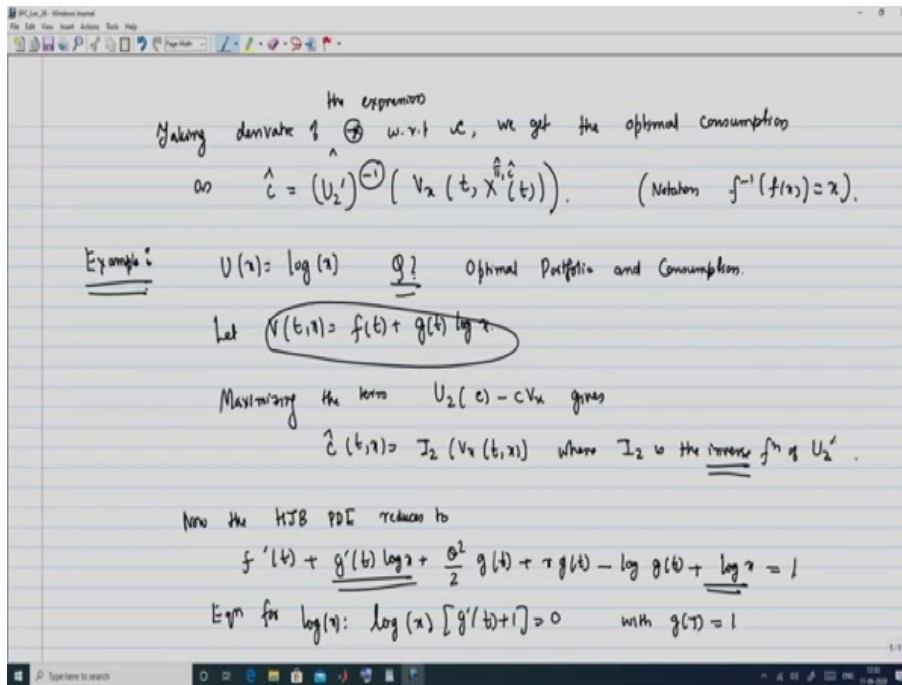 IPC_Lec_28 - Windows Journal
File Edit View Insert Actions Tools Help
Page Width
the expression
Taking derivate of ⊛ w.r.t c, we get the optimal consumption
as ĉ = (U₂')^(-1) ( Vₓ (t, X^{π̂,ĉ}(t)) ). (Notation f⁻¹(f(x)) = x).
Example: U(x) = log(x) Q? Optimal Portfolio and Consumption.
Let V(t,x) = f(t) + g(t) log x.
Maximizing the term U₂(c) - cVₓ gives
ĉ(t,x) = I₂ (Vₓ(t,x)) where I₂ is the inverse fⁿ of U₂'.
Now the HJB PDE reduces to
f'(t) + g'(t) log x + θ²/2 g(t) + r g(t) - log g(t) + log x = 1
Eqn for log(x): log(x) [g'(t)+1] = 0 with g(T) = 1
1/1
Type here to search
ENG
11-06-2020